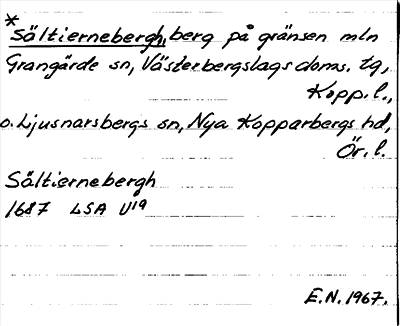 *
Såltiernebergh, berg på gränsen mln
Grangärde sn, Västerbergslags doms. tg,
Kopp. l.,
o. Ljusnarsbergs sn, Nya Kopparbergs hd,
Ör. l.
Såltiernebergh
1687 LSA U19
E.N. 1967.